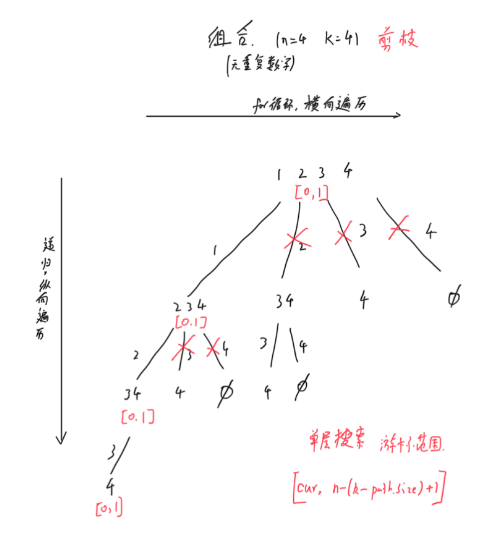 组合. (n=4 k=4) 剪枝
(无重复数字)
for循环,横向遍历
递归,纵向遍历
1 2 3 4
[0,1]
1 2 3 4
2 3 4 3 4 4 ∅
[0.1]
2 3 4 3 4
3 4 4 ∅ 4 ∅
[0,1]
3
4
[0,1]
单层搜索
范围
[cur, n-(k-path.size)+1]